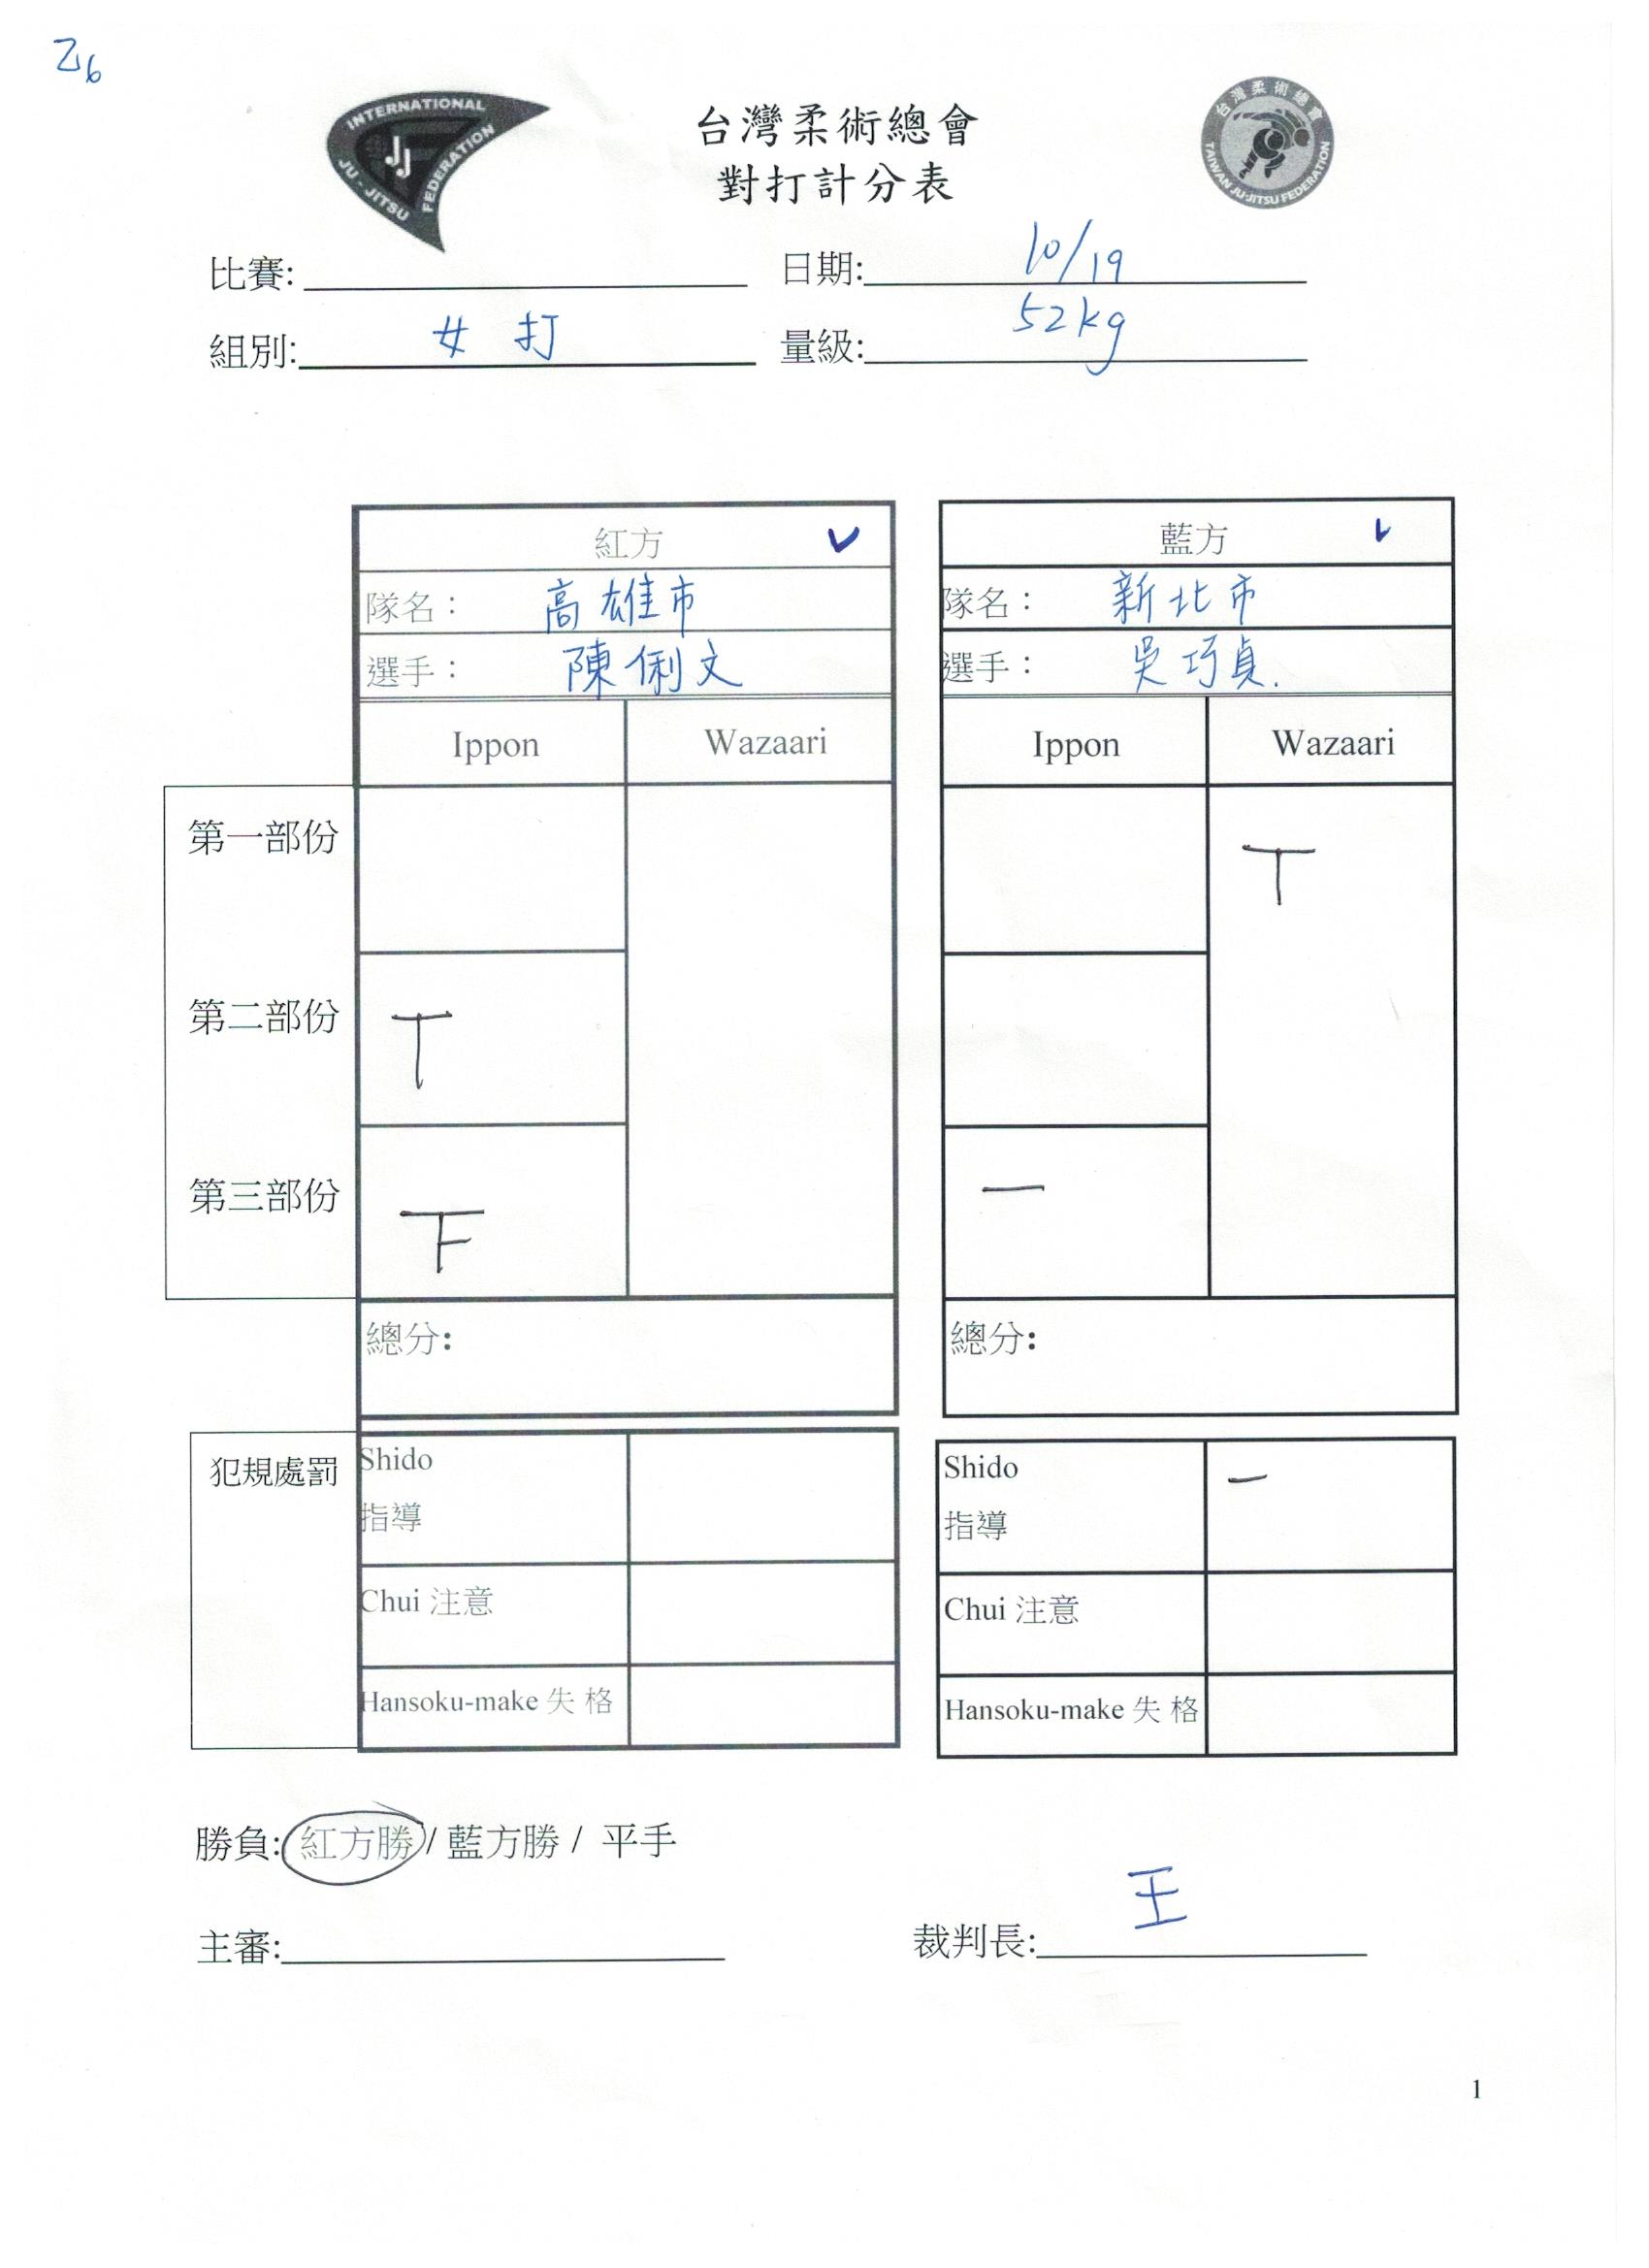 乙6
INTERNATIONAL
JU-JITSU
FEDERATION
JJ
台灣柔術總會
TAIWAN JU-JITSU FEDERATION
台灣柔術總會
對打計分表
比賽: 日期: 10/19
組別: 女 打 量級: 52kg
紅方 ✓ 藍方 ✓
隊名： 高雄市 隊名： 新北市
選手： 陳俐文 選手： 吳巧貞.
Ippon Wazaari Ippon Wazaari
第一部份 T
第二部份 T
第三部份 下 一
總分: 總分:
犯規處罰 Shido Shido 一
指導 指導
Chui 注意 Chui 注意
Hansoku-make 失 格 Hansoku-make 失 格
勝負: 紅方勝 / 藍方勝 / 平手
主審: 裁判長: 王
1